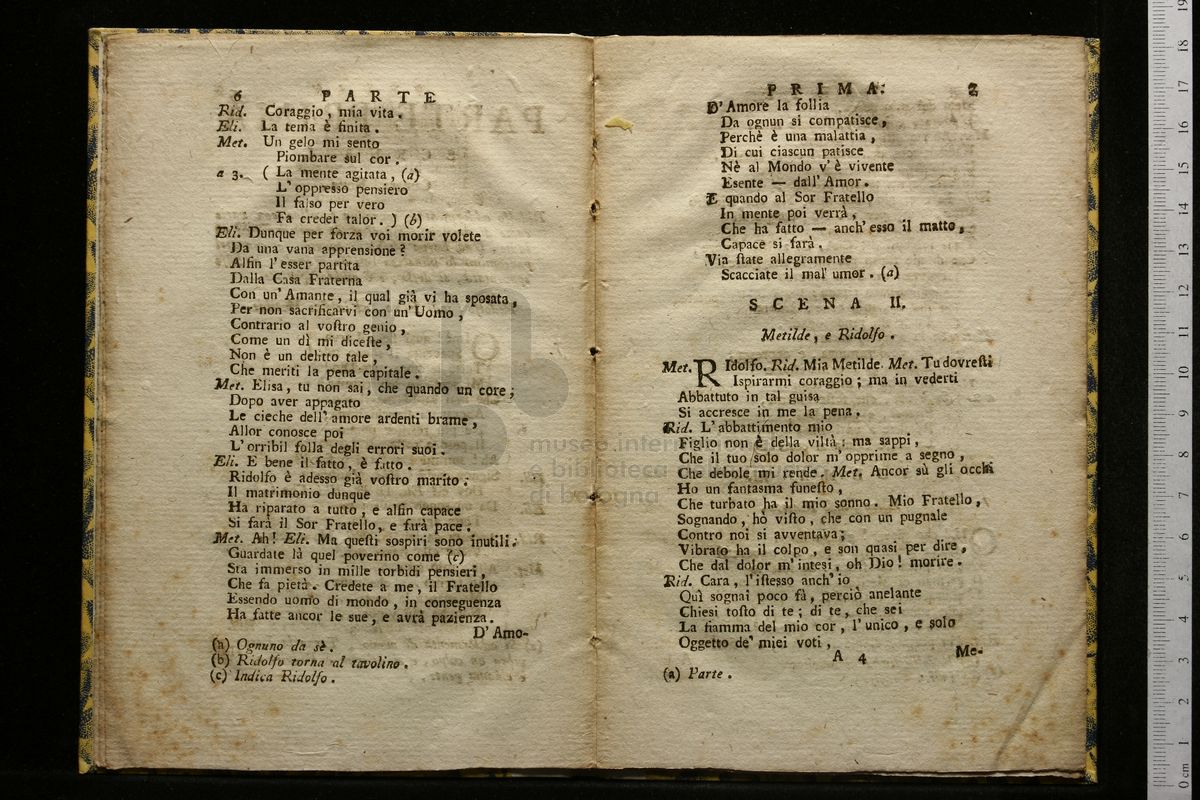 6 PARTE
Rid. Coraggio, mia vita.
Eli. La tema è finita.
Met. Un gelo mi sento
Piombare sul cor.
a 3. ( La mente agitata, (a)
L'oppresso pensiero
Il falso per vero
Fa creder talor. ) (b)
Eli. Dunque per forza voi morir volete
Da una vana apprensione?
Alfin l'esser partita
Dalla Casa Fraterna
Con un'Amante, il qual già vi ha sposata,
Per non sacrificarvi con un'Uomo,
Contrario al voſtro genio,
Come un dì mi diceſte,
Non è un delitto tale,
Che meriti la pena capitale.
Met. Elisa, tu non sai, che quando un core;
Dopo aver appagato
Le cieche dell'amore ardenti brame,
Allor conosce poi
L'orribil folla degli errori suoi.
Eli. E bene il fatto, è fatto.
Ridolfo è adesso già voſtro marito:
Il matrimonio dunque
Ha riparato a tutto, e alfin capace
Si farà il Sor Fratello, e farà pace.
Met. Ah! Eli. Ma queſti sospiri sono inutili.
Guardate là quel poverino come (c)
Sta immerso in mille torbidi pensieri,
Che fa pietà. Credete a me, il Fratello
Essendo uomo di mondo, in conseguenza
Ha fatte ancor le sue, e avrà pazienza.
D'Amo-
(a) Ognuno da sè.
(b) Ridolfo torna al tavolino.
(c) Indica Ridolfo.
PRIMA. 7
D'Amore la follia
Da ognun si compatisce,
Perchè è una malattia,
Di cui ciascun patisce
Nè al Mondo v'è vivente
Esente — dall'Amor.
E quando al Sor Fratello
In mente poi verrà,
Che ha fatto — anch'esso il matto,
Capace si farà.
Via ſtate allegramente
Scacciate il mal'umor. (a)
SCENA II.
Metilde, e Ridolfo.
Met. RIdolfo. Rid. Mia Metilde. Met. Tu dovreſti
Ispirarmi coraggio; ma in vederti
Abbattuto in tal guisa
Si accresce in me la pena.
Rid. L'abbattimento mio
Figlio non è della viltà: ma sappi,
Che il tuo solo dolor m'opprime a segno,
Che debole mi rende. Met. Ancor sù gli occhi
Ho un fantasma funeſto,
Che turbato ha il mio sonno. Mio Fratello,
Sognando, hò viſto, che con un pugnale
Contro noi si avventava;
Vibrato ha il colpo, e son quasi per dire,
Che dal dolor m'intesi, oh Dio! morire.
Rid. Cara, l'iſtesso anch'io
Quì sognai poco fà, perciò anelante
Chiesi toſto di te; di te, che sei
La fiamma del mio cor, l'unico, e solo
Oggetto de' miei voti,
A 4 Me-
(a) Parte.
museo inter
e biblioteca
di bologna